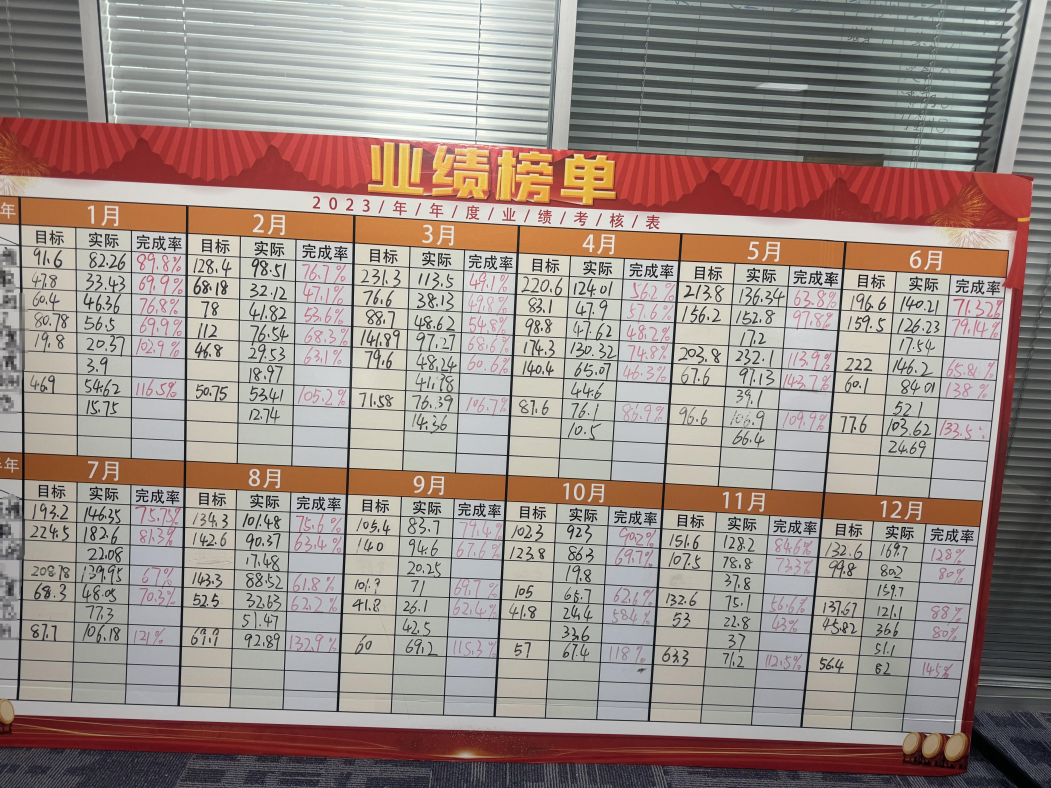 业绩榜单
2023/年/年/度/业/绩/考/核/表
年 1月 2月 3月 4月 5月 6月
目标 实际 完成率 目标 实际 完成率 目标 实际 完成率 目标 实际 完成率 目标 实际 完成率 目标 实际 完成率
91.6 82.26 89.8% 128.4 98.51 76.7% 231.3 113.5 49.1% 220.6 124.01 56.2% 213.8 136.34 63.8% 196.6 140.21 71.32%
47.8 33.43 69.9% 68.18 32.12 47.1% 76.6 38.13 49.8% 83.1 47.9 57.6% 156.2 152.8 97.8% 159.5 126.23 79.14%
60.4 46.36 76.8% 78 41.82 53.6% 88.7 48.62 54.8% 98.8 47.62 48.2% 17.2 17.54
80.78 56.5 69.9% 112 76.54 68.3% 141.89 97.27 68.6% 174.3 130.32 74.8% 203.8 232.1 113.9% 222 146.2 65.8%
19.8 20.37 102.9% 46.8 29.53 63.1% 79.6 48.24 60.6% 140.4 65.07 46.3% 67.6 97.13 143.7% 60.1 84.01 138%
3.9 18.97 41.78 44.6 39.1 52.1
46.9 54.62 116.5% 50.75 53.41 105.2% 71.58 76.39 106.7% 87.6 76.1 86.9% 96.6 106.9 109.9% 77.6 103.62 133.5%
15.75 12.74 14.36 10.5 66.4 24.69
年 7月 8月 9月 10月 11月 12月
目标 实际 完成率 目标 实际 完成率 目标 实际 完成率 目标 实际 完成率 目标 实际 完成率 目标 实际 完成率
193.2 146.35 75.75% 134.3 101.48 75.6% 105.4 83.7 79.4% 102.3 92.3 90.2% 151.6 128.2 84.6% 132.6 169.7 128%
224.5 182.6 81.3% 142.6 90.37 63.4% 140 94.6 67.6% 123.8 86.3 69.7% 107.5 78.8 73.3% 99.8 80.2 80%
22.08 17.48 20.25 19.8 37.8 159.7
208.78 139.95 67% 143.3 88.52 61.8% 101.9 71 69.7% 105 65.7 62.6% 132.6 75.1 56.6% 137.67 121.1 88%
68.3 48.05 70.3% 52.5 32.63 62.2% 41.8 26.1 62.4% 41.8 24.4 58.4% 53 22.8 43% 45.82 36.6 80%
77.3 51.47 42.5 33.6 37 51.1
87.7 106.18 121% 69.9 92.89 132.9% 60 69.2 115.3% 57 67.4 118% 63.3 71.2 112.5% 56.4 82 145%